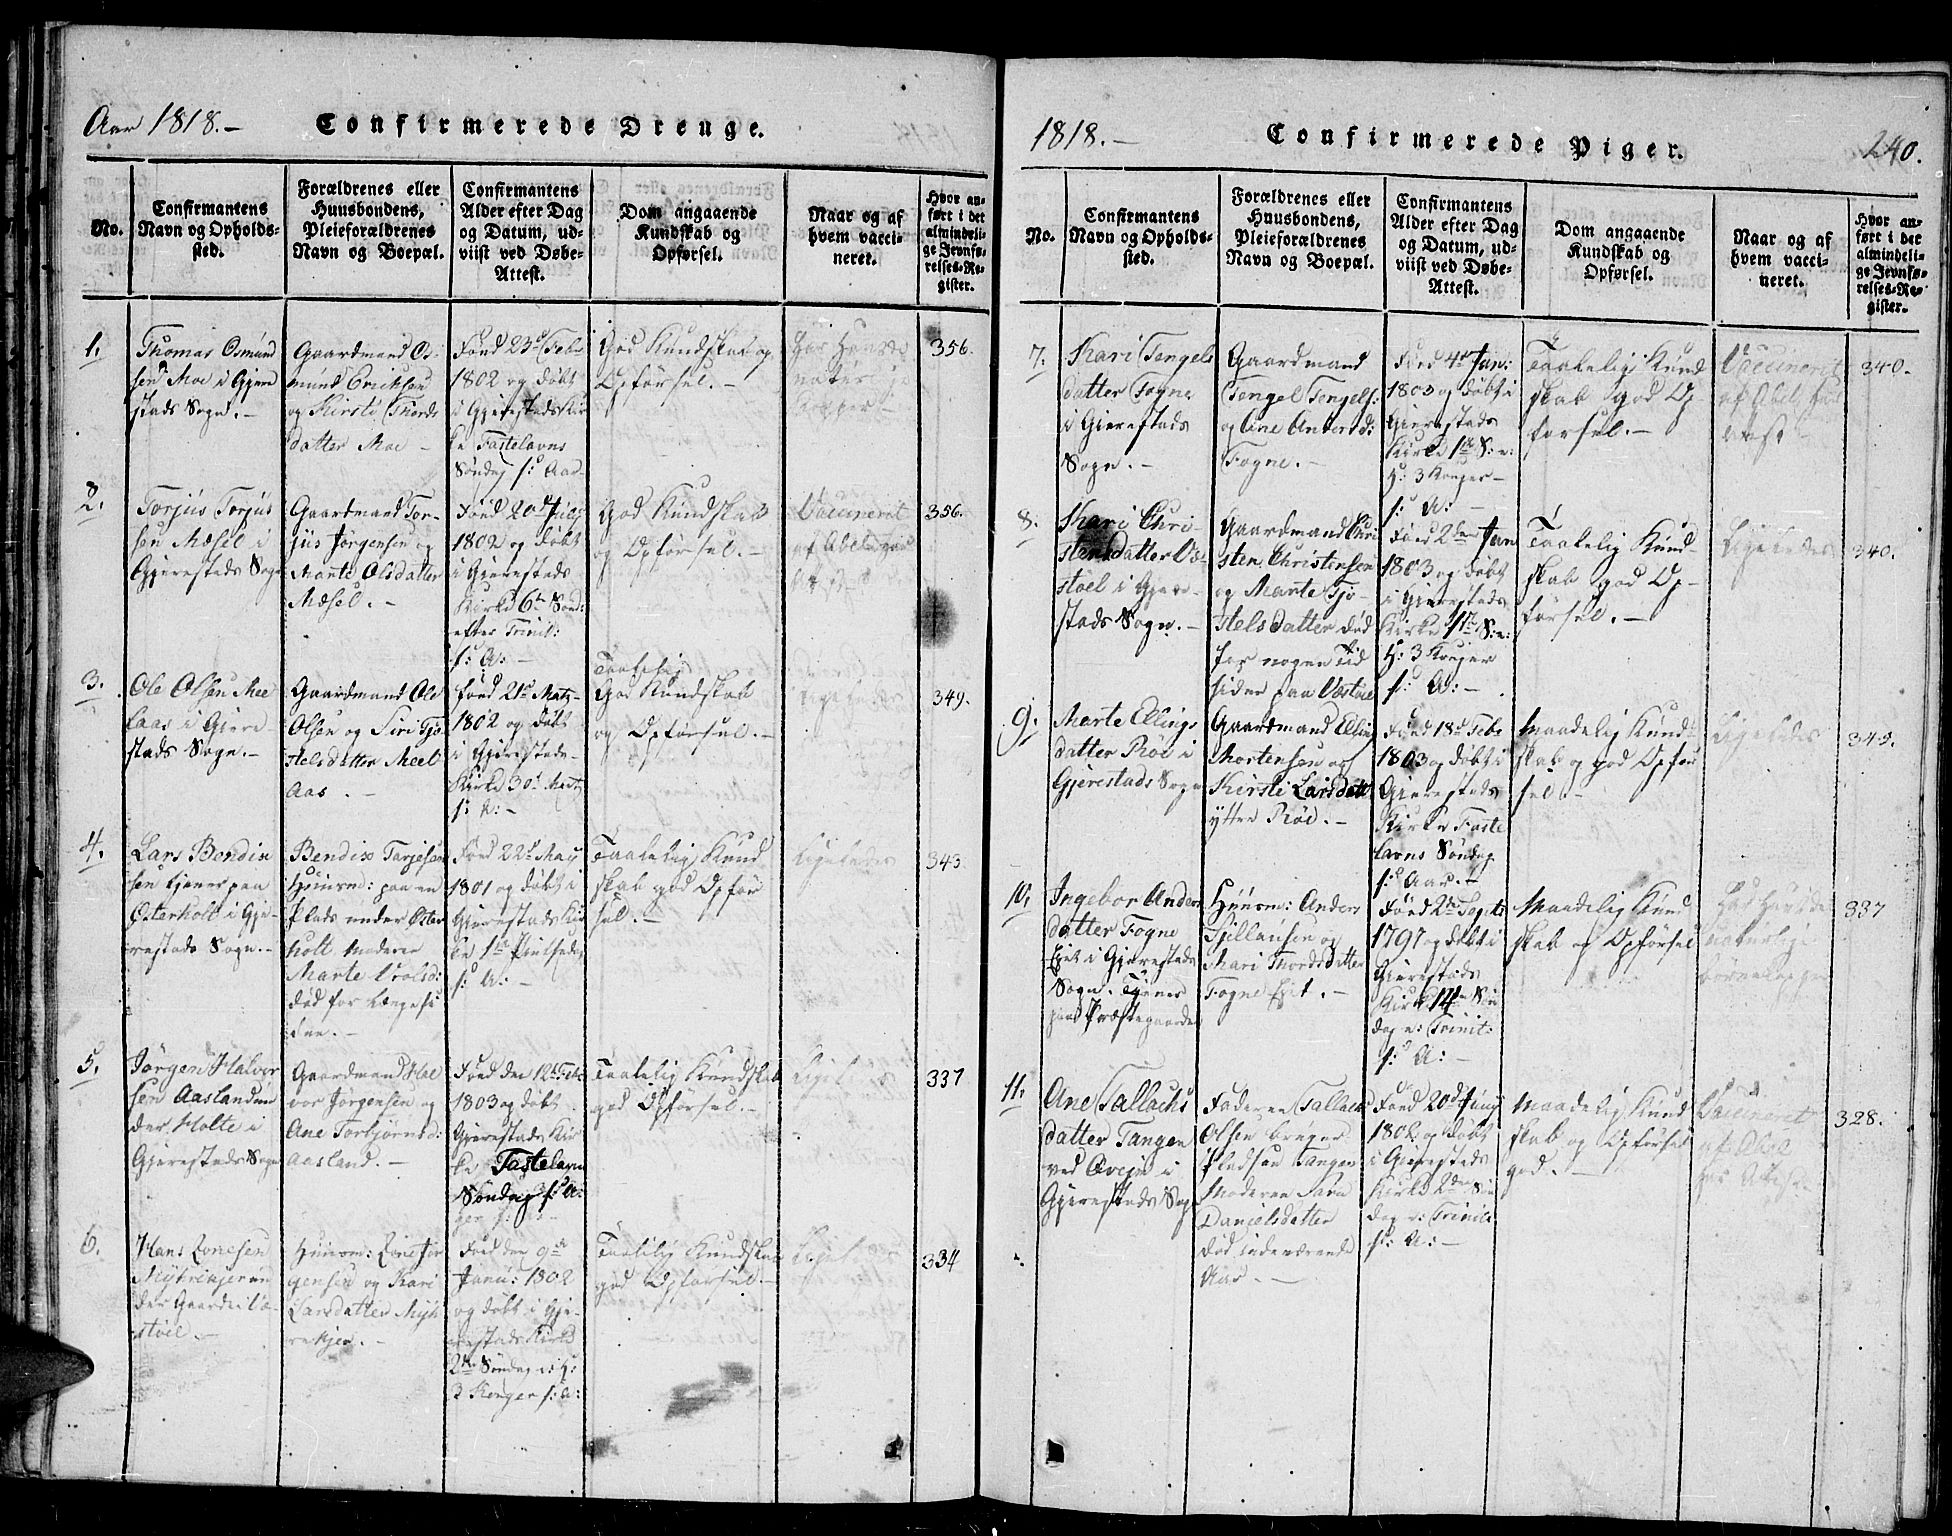 Aar 1818.-
Confirmerede Drenge.
No.
Confirmantens
Navn og Opholds-
sted.
Forældrenes eller
Huusbondens,
Pleieforældrenes
Navn og Boepæl.
Confirmantens
Alder efter Dag
og Datum, ud-
viist ved Døbe-
Attest.
Dom angaaende
Kundskab og
Opførsel.
Naar og af
hvem vacci-
neret.
Hvor an-
ført i det
almindeli-
ge Jevnfø-
relses-Re-
gister.
1.
Thomas Osmund
sen Moe i Gjere
stads Sogn.-
Gaardmand Os-
mund Eriksen
og Kirsti Thords
datter Moe -
Fød 23d Febr
1802 og døbt
i Gjerestads Kir
ke Fastelavns
Søndag s: Aar-
God Kundskab og
Opførsel.-
356.
2.
Torjus Torjus
sen Mæsel i
Gjerestads Sogn
Gaardmand Tor-
jus Jørgensen og
Marte Olsdatter
Mæsel.-
Fød 20d July
1802 og døbt
i Gjerestads
Kirke 6te Sønd:
efter Trinit:
s: A:-
God Kundskab
og Opførsel.-
Vaccineret
356.
3.
Ole Olsen Mee
laas i Gjere
stads Sogn.-
Gaardmand Ole
Olsen og Siri Tjø
stelsdatter Meel
aas.-
Fød 21d Martz
1802 og døbt
i Gjerestads
Kirke 30d Martz
s: A:-
Taalelig
God Kundskab
og Opførsel.-
Ligeledes
349.
4.
Lars Bendix
sen tjener paa
Østerholt i Gje-
restads Sogn.-
Bendix Tarjesen
Huusm: paa en
Plads under Øster
holt Moderen
Marte
død for længe si
den.-
Fød 22d May
1801 og døbt i
Gjerestads Kir
ke 1ste Pintsedag
s: A:-
Taalelig Kund
skab god Opfør
sel.-
Ligeledes
343
5.
Jørgen Halvor
sen Aasland un
der Holte i
Gjerestads Sogn
Gaardmand Hal
vor Jørgensen og
Ane Torbjørnsd:
Aasland.-
Fød den 12te Feb:
1803 og døbt
Gjerestads Kir
ke Fastelavn
Søndag s: A:
Taalelig Kundskab
god Opførsel.-
Ligeledes
337
6.
Hans Zonesen
Mykrekjer un
der Gaarden Væ-
støel.-
Huusm: Zone Jør
gensen og Kari
Larsdatter Myk
rekjer.-
Fød den 9de
Janu: 1802
og døbt i Gje-
restads Kirke
2den Søndag e: H:
3 Konger s: A:
Taalelig Kundskab
god Opførsel.-
Ligel
334
1818.-
Confirmerede Piger.
240.
No.
Confirmantens
Navn og Opholds-
sted.
Forældrenes eller
Huusbondens,
Pleieforældrenes
Navn og Boepæl.
Confirmantens
Alder efter Dag
og Datum, ud-
viist ved Døbe-
Attest.
Dom angaaende
Kundskab og
Opførsel.
Naar og af
hvem vacci-
neret.
Hvor an-
ført i det
almindeli-
ge Jevnfø-
relses-Re-
gister.
7.
Kari Tengels
datter Fogne
i Gjerestads
Sogn.-
Gaardmand
Tengel Tengels:
og Ane Andersd:
Fogne.-
Fød 4de Jan:
1803 og døbt i
Gjerestads
Kirke 1ste S: e:
H: 3 Konger-
s: A:-
Taalelig Kund
skab god Op-
førsel.-
Vaccineret
340.
8.
Kari Chri-
stensdatter Væ-
støel i Gjere-
stads Sogn.-
Gaardmand Chri
sten Christensen
og Marte Tjø-
stelsdatter død
for nogen Tid
siden paa Væstøel
Fød 2den Jan
1803 og døbt
i Gjerestads
Kirke 1ste S: e:
H: 3 Konger
s: A:-
Taalelig Kund-
skab god Op-
førsel.-
Ligeledes
340.
9.
Marte Ellings
datter Røe i
Gjerestads Sogn
Gaardmand Elling
Mortensen og
Kirsti Larsdatt
ytter Røe.-
Fød 18d Feb:
1803 og døbt i
Gjerestads
Kirke Faste
lavns Søndag
s: Aar.-
Maadelig Kund-
skab og god Opfør
sel.-
Ligeledes
345.
10.
Ingebor Anders
datter Fogne
Ejet i Gjerestads
Sogn. Tjener
paa Præstegaarden
Huusm: Anders
og
Mari Thordsdatter
Fogne Ejet.-
Fød 2de Sept:
1797 og døbt i
Gjerestads
Kirke 14de Søn
dag e: Trinit:
s: A:-
Maadelig Kund
skab og Opførsel
337
11.
Ane Tallachs
datter Tangen
ved i
Gjerestads Sogn
Faderen Tallach
Olsen bruger
Pladsen Tangen
Moderen Sara
Danielsdatter
død indeværende
Aar.-
Fød 20d Juny
1802 og døbt
i Gjerestads
Kirke 2den Søn
dag e: Trinit:
s: A:-
Maadelig Kund
skab og Opførsel
god.-
Vaccineret
328.